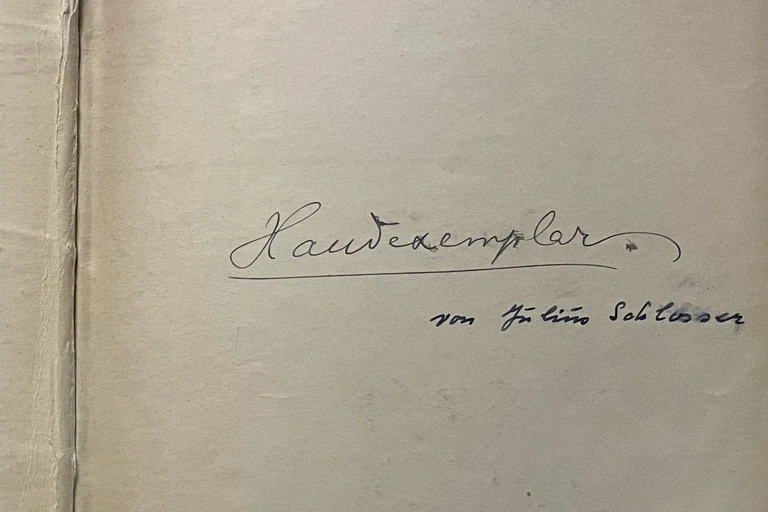 Handexemplar
von Julius Schlosser